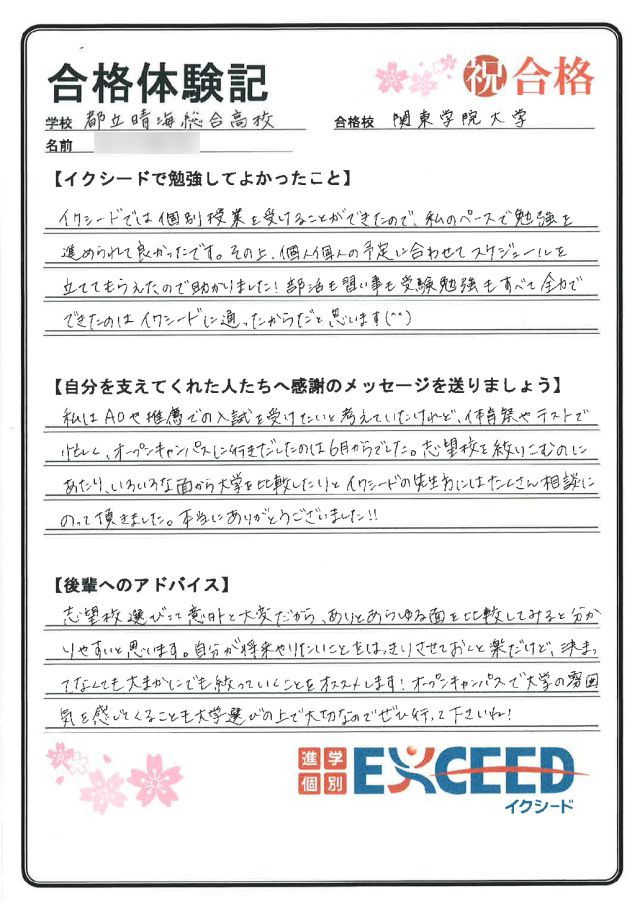 合格体験記
祝合格
学校 都立晴海総合高校 合格校 関東学院大学
名前
【イクシードで勉強してよかったこと】
イクシードでは個別授業を受けることができたので、私のペースで勉強を
進められて良かったです。その上、個人個人の予定に合わせてスケジュールを
立ててもらえたので助かりました！部活も習い事も受験勉強もすべて全力で
できたのはイクシードに通ったからだと思います(^^)
【自分を支えてくれた人たちへ感謝のメッセージを送りましょう】
私はAOや推薦での入試を受けたいと考えていたけれど、体育祭やテストで
忙しく、オープンキャンパスに行きだしたのは6月からでした。志望校を絞りこむのに
あたり、いろいろな面から大学を比較したりとイクシードの先生方にはたくさん相談に
のって頂きました。本当にありがとうございました!!
【後輩へのアドバイス】
志望校選びって意外と大変だから、ありとあらゆる面を比較してみると分か
りやすいと思います。自分が将来やりたいことをはっきりさせておくと楽だけど、決まっ
てなくても大まかにでも絞っていくことをオススメします！オープンキャンパスで大学の雰囲
気を感じてくることも大学選びの上で大切なのでぜひ行って下さいね！
進学
個別
EXCEED
イクシード